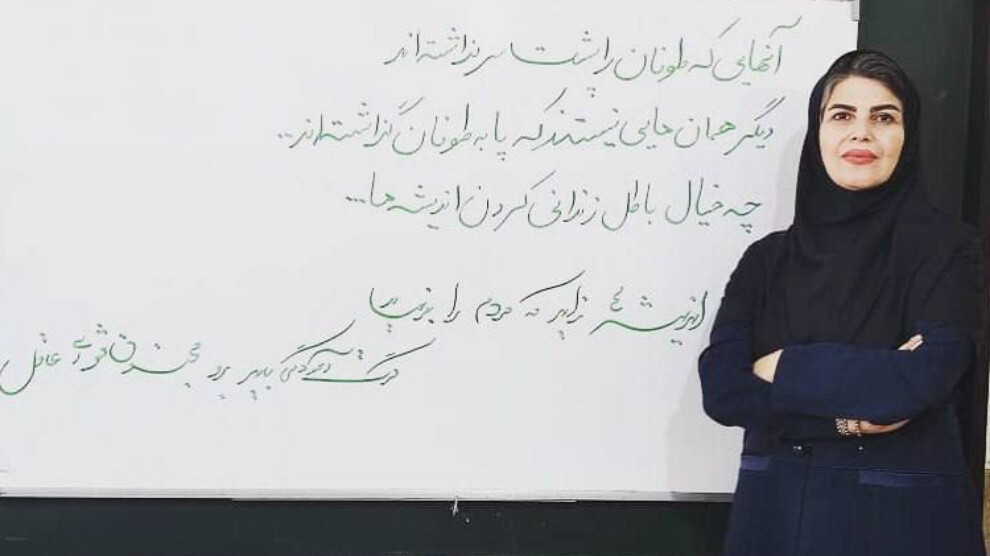 آنهایی که طوفان را پشت سر نذاشته اند
دیگر همان هایی نیستند که پا به طوفان گذاشته اند...
چه خیال باطل زندانی کردن اندیشه ها...
اندیشه زاید که مردم را
گرت آسودگی باید برو شو ای عاقل